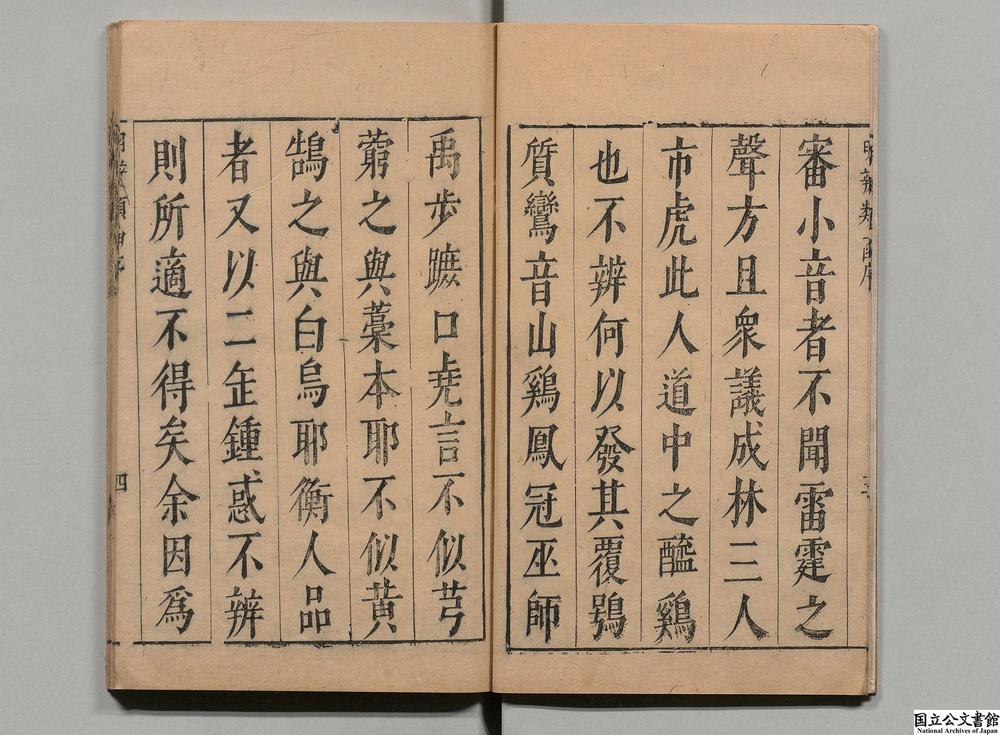 審小音者不聞雷霆之
聲方且衆議成林三人
市虎此人道中之醯鷄
也不辨何以發其覆鴞
質鸞音山鷄鳳冠巫師
禹步蹠口堯言不似芎
藭之與藁本耶不似黃
鵠之與白烏耶衡人品
者又以二缶鍾惑不辨
則所適不得矣余因爲
四
国立公文書館
National Archives of Japan